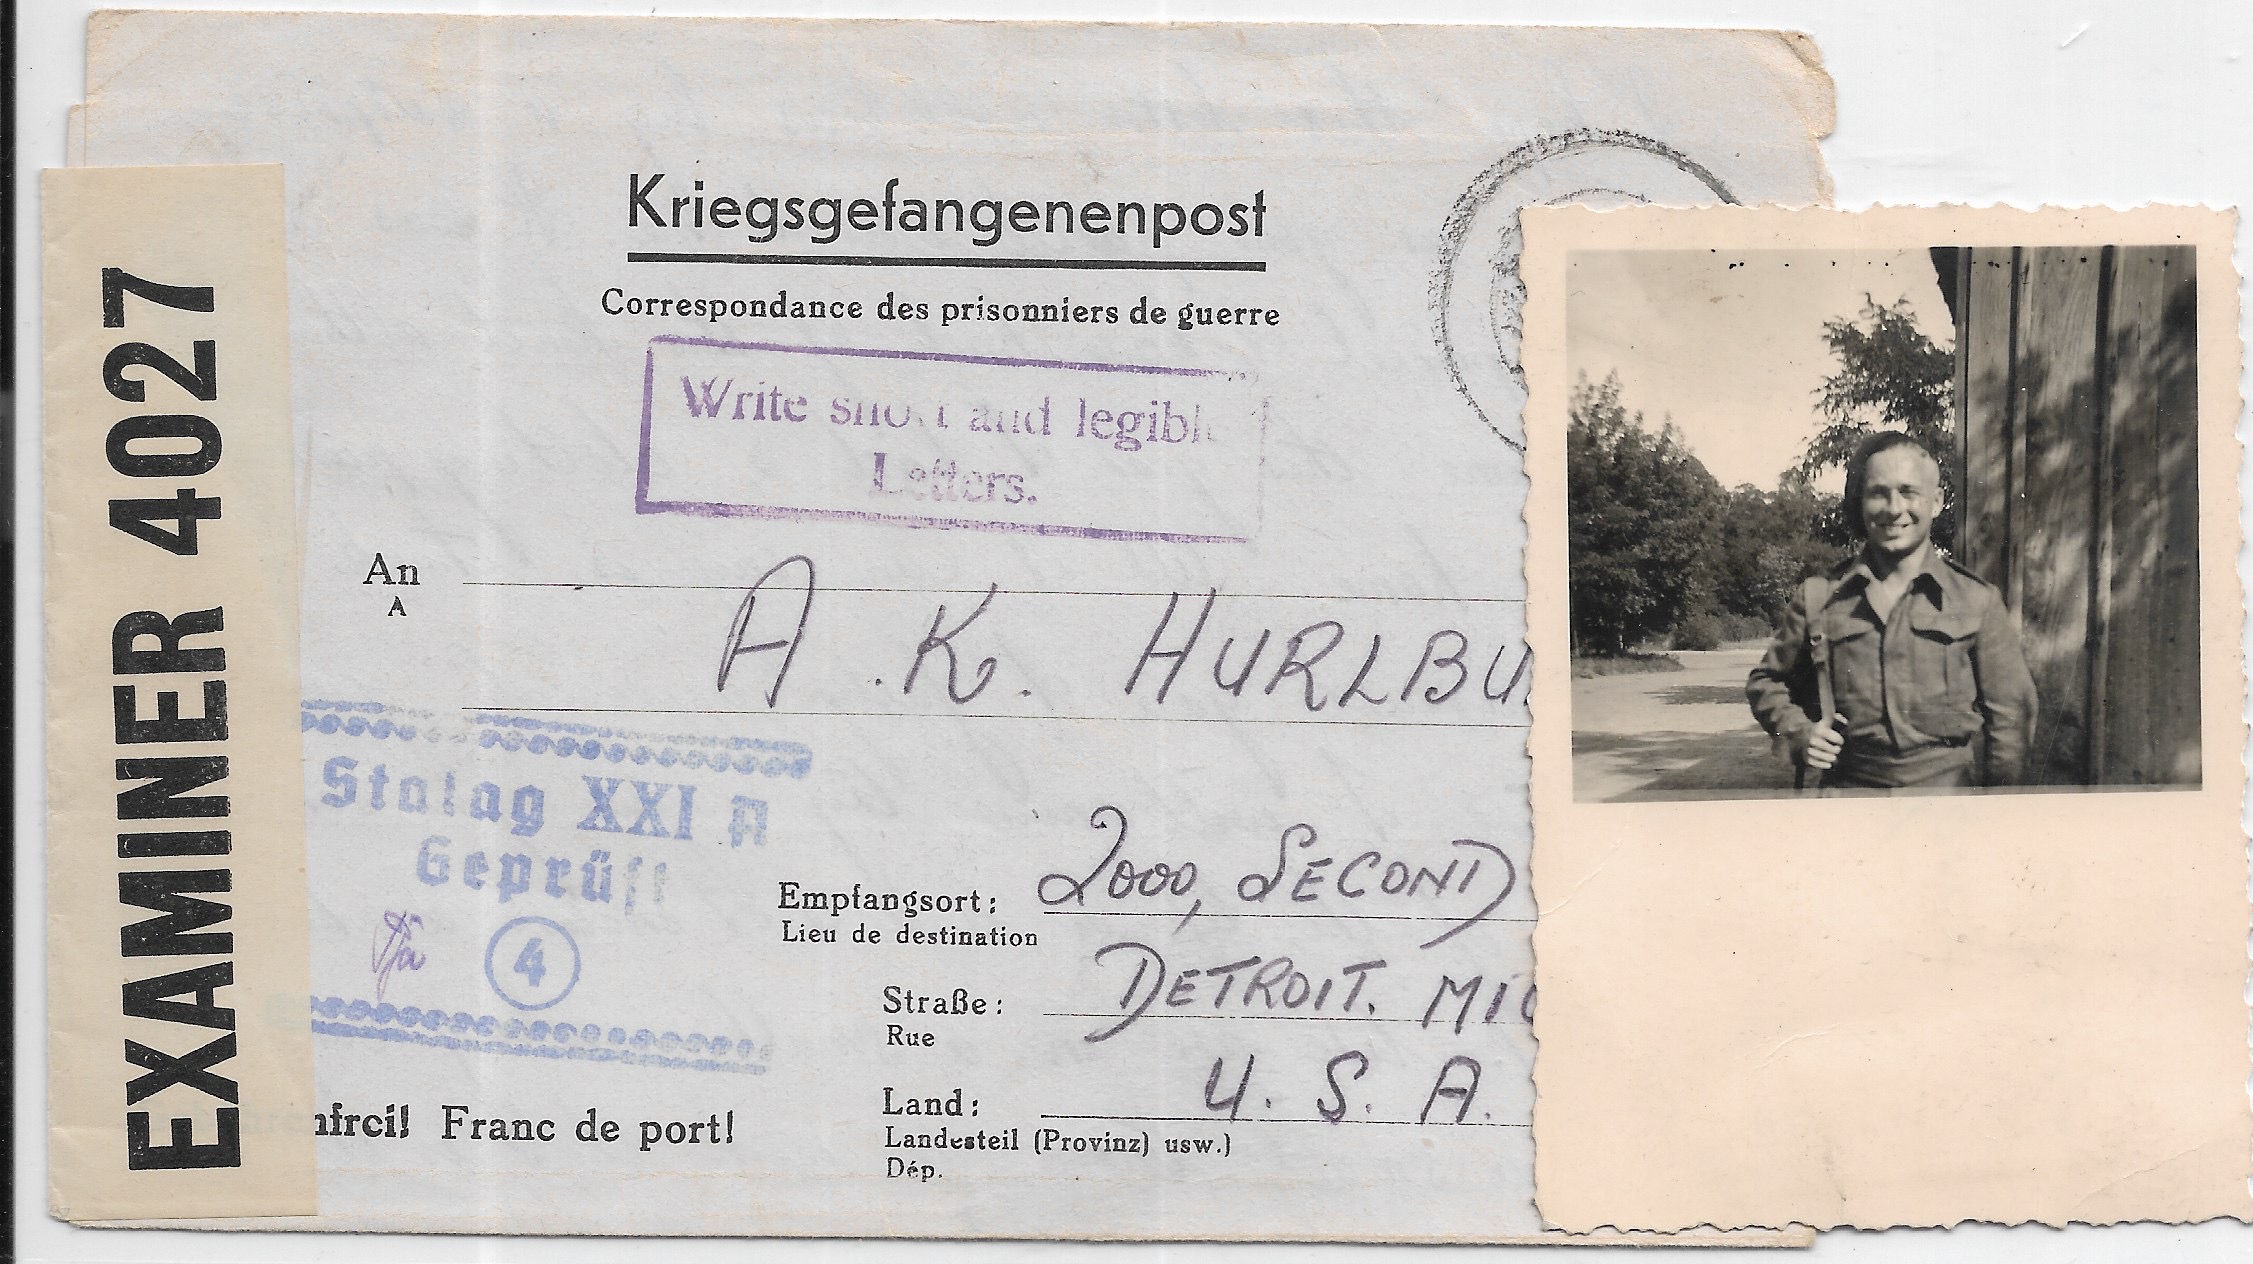 EXAMINER 4027
Kriegsgefangenenpost
Correspondance des prisonniers de guerre
Write short and legible
Letters.
An
A
A. K. HURLBU
Stalag XXI A
Geprüft
4
Empfangsort: 2000, SECOND
Lieu de destination
Straße: DETROIT. MIC
Rue
Land: U. S. A.
Landesteil (Provinz) usw.)
Dép.
nfrei! Franc de port!